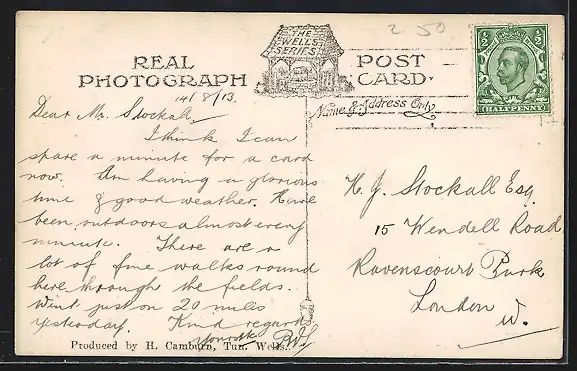 2 50
REAL
PHOTOGRAPH
THE
WELLS
SERIES
POST
CARD.
Name & Address Only
½ ½
HALFPENNY
14/8/13.
Dear Mr. Stockall,
I think I can
spare a minute for a card
now. Am having a glorious
time & good weather. Have
been outdoors almost every
minute. There are a
lot of fine walks round
here through the fields.
Went just on 20 miles
yesterday. Kind regards
H. J. Stockall Esq.
15 Wendell Road
Ravenscourt Park
London
W.
Produced by H. Camburn, Tun. Wells.